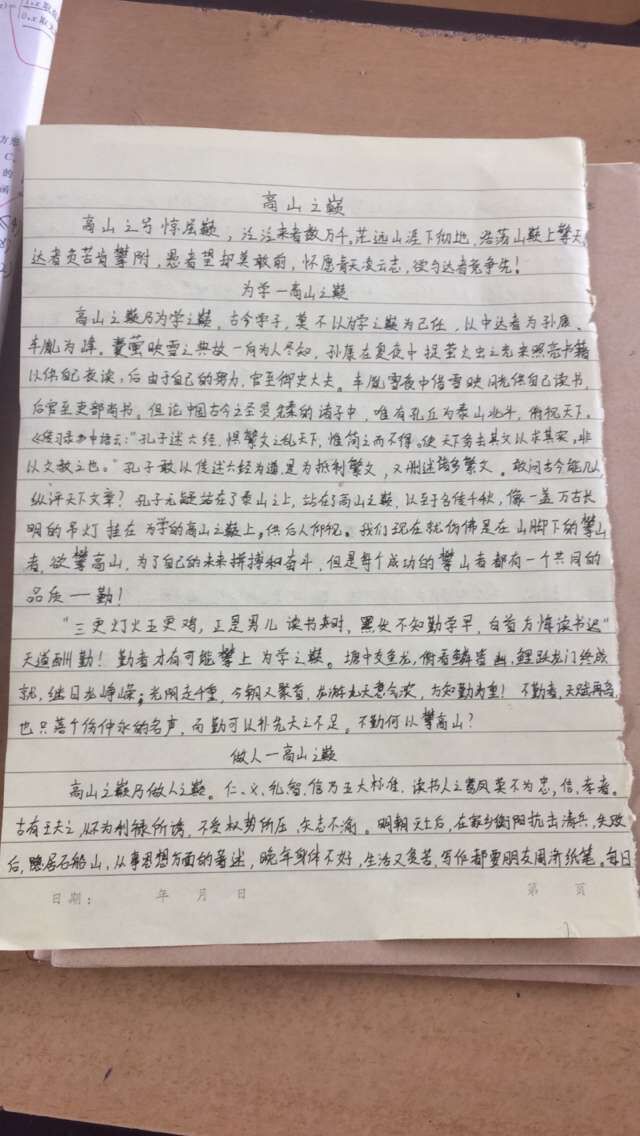 高山之巅
高山之弓惊层巅，泛泛来者数万千。茫远山涯下彻地，浩荡山巅上擎天
达者负苦肯攀附，愚者望却莫敢前，怀愿青天凌云志，欲与达者竞争先！
为学—高山之巅
高山之巅乃为学之巅，古今学子，莫不以为学之巅为己任，以中达者为孙康、
车胤为峰。囊萤映雪之典故一向为人尽知，孙康在夏夜中捉萤火虫之光来照亮书籍
以供自己夜读，后由于自己的努力，官至御史大夫。车胤雪夜中借雪映月光供自己读书，
后官至吏部尚书。但论中国古今之圣贤，儒家的诸子中，唯有孔丘为泰山北斗，俯视天下。
《传习录》中语云：“孔子述六经，惧繁文之乱天下，惟简之而不得。使天下务去其文以求其实，非
以文教之也。”孔子敢以传述六经为道是为抵制繁文，又删述诸多繁文。敢问古今能几人
纵评天下文章？孔子无疑站在了泰山之上，站在了高山之巅，以至于名传千秋，像一盏万古长
明的吊灯挂在为学的高山之巅上，供后人仰视。我们现在就仿佛是在山脚下的攀山
者，欲攀高山，为了自己的未来拼搏和奋斗，但是每个成功的攀山者都有一个共同的
品质—勤！
“三更灯火五更鸡，正是男儿读书时，黑发不知勤学早，白首方悔读书迟”
天道酬勤！勤者才有可能攀上为学之巅。塘中交鱼龙，俯看鳞 ，鲤跃龙门终成
就，继日龙峥嵘；光阴走千重，今朝又聚首，龙游九天志气浓，方知勤为重！不勤者，天赋再高
也只落个伤仲永的名声，而勤可以补先天之不足。不勤何以攀高山？
做人—高山之巅
高山之巅乃做人之巅。仁、义、礼、智、信乃五大标准，读书人之高风莫不为忠，信，孝者。
古有王夫之，不为利禄所诱，不受权势所压，矢志不渝。明朝灭亡后，在家乡衡阳抗击清兵，失败
后，隐居石船山，从事思想方面的著述，晚年身体不好，生活又贫苦，写作都要朋友周济纸笔。每日
日期： 年 月 日 第 页